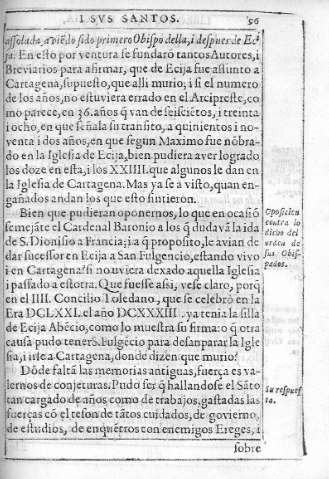 I SVS SANTOS. 56
assolada, aviẽdo sido primero Obispo della, i despues de Eci
ja. En esto por ventura se fundarõ tantos Autores, i
Breviarios para afirmar, que de Ecija fue assunto a
Cartagena, supuesto, que alli murio; i si el numero
de los años, no estuviera errado en el Arcipreste, co
mo parece, en 36. años q̃ van de seiscietos, i treinta
i ocho, en que señala su transito, a quinientos i no-
venta i dos años, en que segun Maximo fue nõbra-
do en la Iglesia de Ecija, bien pudiera aver logrado
los doze en esta, i los XXIIII. que algunos le dan en
la Iglesia de Cartagena. Mas ya se a visto, quan en-
gañados andan los que esto sintieron.
Bien que pudieran oponernos, lo que en ocasiõ
semejãte el Cardenal Baronio a los q̃ dudavã la ida
de S. Dionisio a Francia; i a q̃ proposito, le avian de
dar sucessor en Ecija a San Fulgencio, estando vivo
i en Cartagena? si no uviera dexado aquella Iglesia
i passado a estotra. Que fuesse assi, vese claro, porq̃
en el IIII. Concilio Toledano, que se celebrò en la
Era DCLXXI. el año DCXXXIII. ya tenia la silla
de Ecija Abẽcio, como lo muestra su firma: o q̃ otra
causa pudo tener S. Fulgẽcio para desanparar la Igle
sia, i irse a Cartagena, donde dizen que murio?
Dõde faltã las memorias antiguas, fuerça es va-
lernos de conjeturas. Pudo ser q̃ hallandose el Sãto
tan cargado de años, como de trabajos, gastadas las
fuerças cõ el teson de tãtos cuidados, de govierno,
de estudios, de enquẽtros con enemigos Ereges, i
sobre
Oposicion
contra lo
dicho del
orden de
sus Obis-
pados.
Su respues
ta.